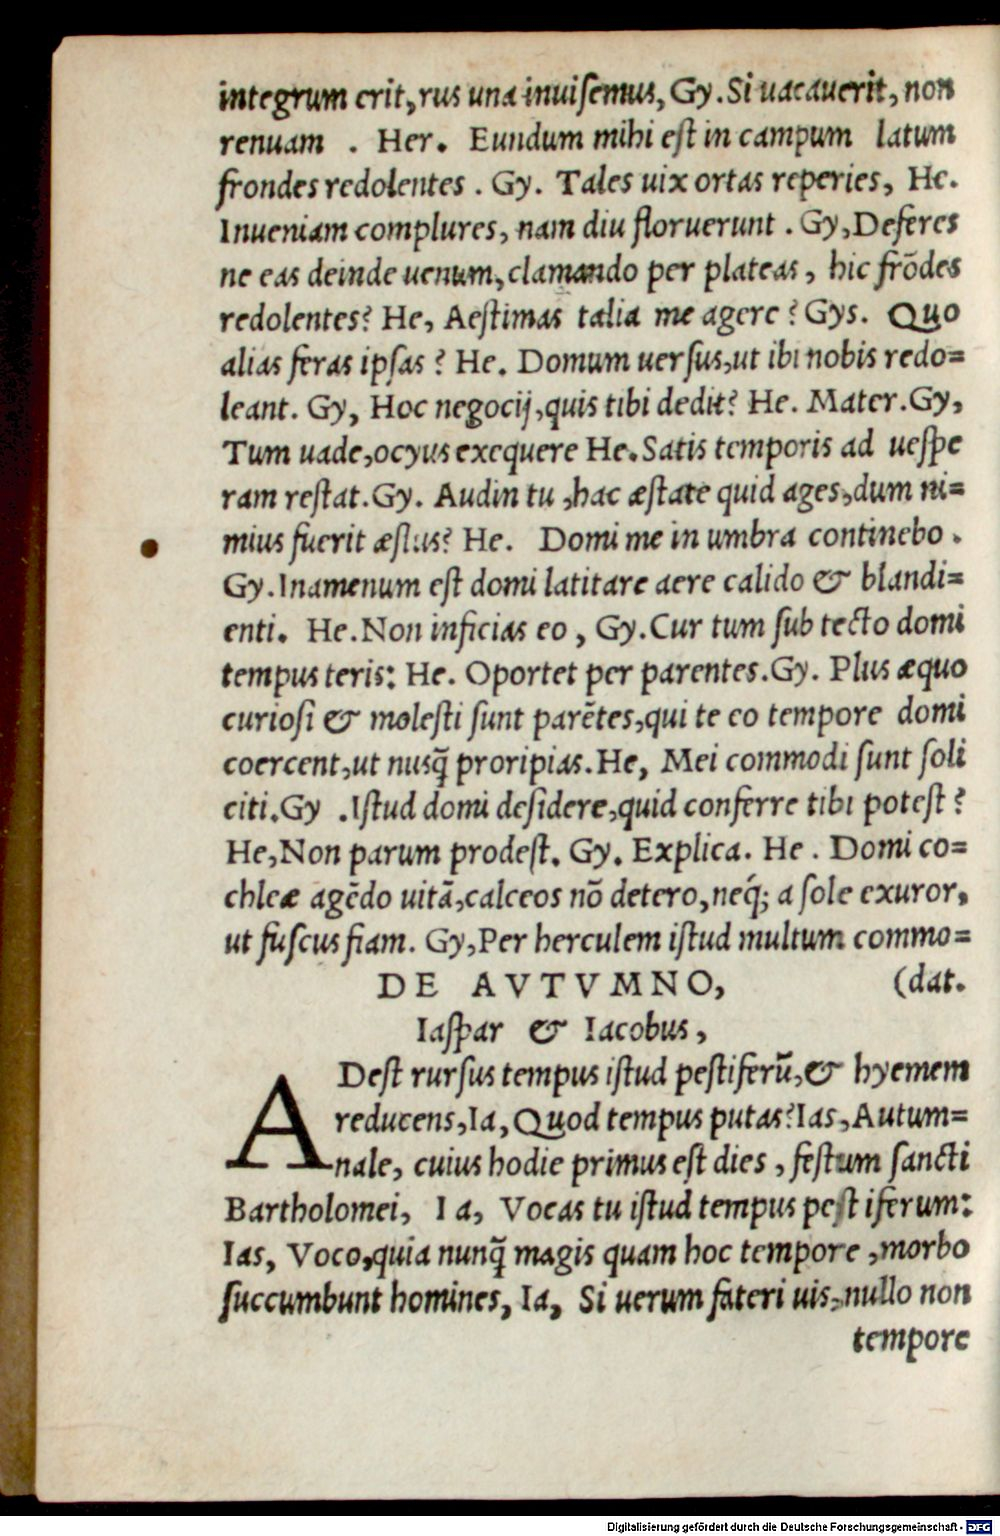 integrum erit, rus una inuiſemus, Gy. Si uacauerit, non
renuam . Her. Eundum mihi eſt in campum latum
frondes redolentes . Gy. Tales uix ortas reperies, He.
Inueniam complures, nam diu floruerunt . Gy, Deferes
ne eas deinde uenum, clamando per plateas, hic frōdes
redolentes? He, Aeſtimas talia me agere? Gys. Quo
alias feras ipſas? He. Domum uerſus, ut ibi nobis redo=
leant. Gy, Hoc negocij, quis tibi dedit? He. Mater. Gy,
Tum uade, ocyus exequere He. Satis temporis ad ueſpe
ram reſtat. Gy. Audin tu, hac æſtate quid ages, dum ni=
mius fuerit æſtus? He. Domi me in umbra continebo.
Gy. Inamenum eſt domi latitare aere calido & blandi=
enti. He. Non inficias eo, Gy. Cur tum ſub tecto domi
tempus teris: He. Oportet per parentes. Gy. Plus æquo
curioſi & moleſti ſunt parētes, qui te eo tempore domi
coercent, ut nusq̃ proripias. He, Mei commodi ſunt ſoli
citi. Gy . Iſtud domi deſidere, quid conferre tibi poteſt?
He, Non parum prodeſt. Gy. Explica. He. Domi co=
chleæ agēdo uitā, calceos nō detero, neq́; a ſole exuror,
ut fuſcus fiam. Gy, Per herculem iſtud multum commo=
DE AVTVMNO, (dat.
Iaſpar & Iacobus,
ADeſt rurſus tempus iſtud peſtiferū, & hyemem
reducens, Ia, Quod tempus putas? Ias, Autum=
nale, cuius hodie primus eſt dies, feſtum ſancti
Bartholomei, Ia, Vocas tu iſtud tempus peſtiferum:
Ias, Voco, quia nunq̃ magis quam hoc tempore, morbo
ſuccumbunt homines, Ia, Si uerum fateri uis, nullo non
tempore
Digitalisierung gefördert durch die Deutsche Forschungsgemeinschaft - DFG